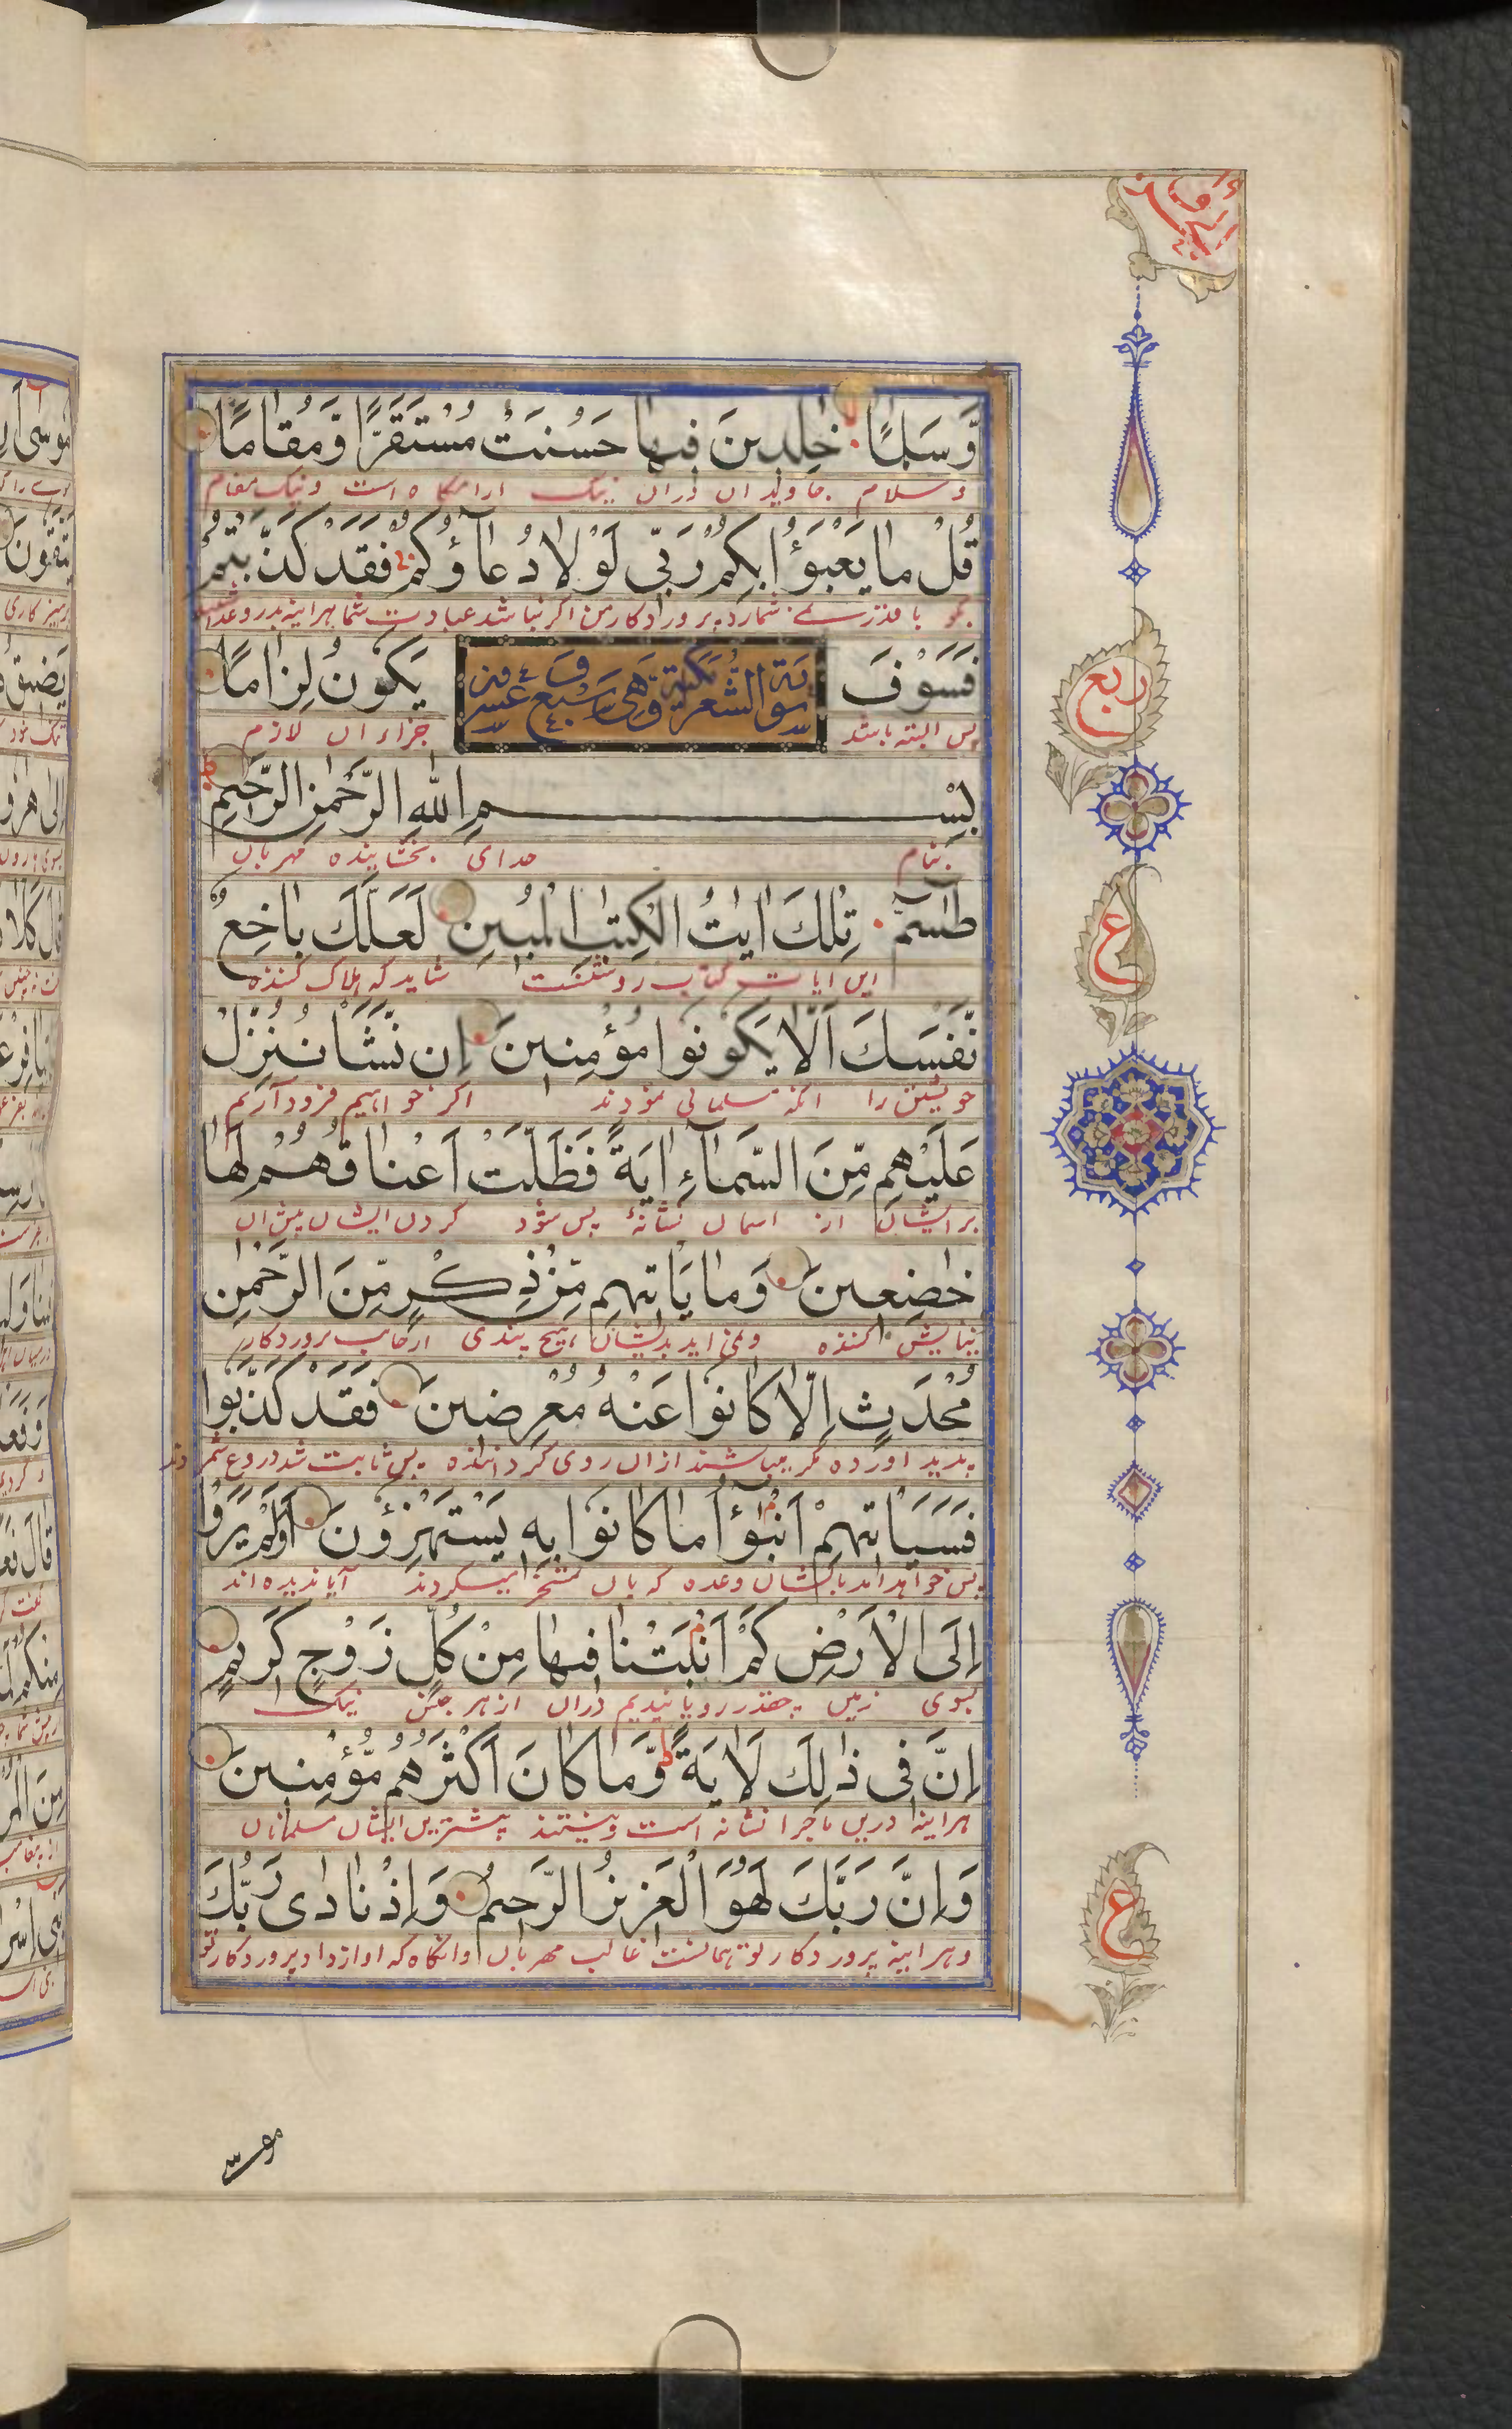 وَّسَلٰمًا خٰلِدِينَ فِيهَا حَسُنَتْ مُسْتَقَرًّا وَّمُقَامًا
وسلام جاویدان دران نیک ارامگاه است و نیک مقام
قُلْ مَا يَعْبَؤُا بِكُمْ رَبِّي لَوْلَا دُعَاؤُكُمْ فَقَدْ كَذَّبْتُمْ
پروردکار من اکر نباشد عبادت شما هراینه بدروغ
فَسَوْفَ يَكُونُ لِزَامًا
سورة الشعرآ مكية وهي
پس البته باشد جزاء ان لازم
بِسْمِ اللهِ الرَّحْمٰنِ الرَّحِيمِ
بنام خدای بخشاینده مهربان
طٰسٓمّٓ تِلْكَ اٰيٰتُ الْكِتٰبِ الْمُبِينِ لَعَلَّكَ بَاخِعٌ
این ایات کتاب روشنست شاید که هلاک کننده
نَّفْسَكَ اَلَّا يَكُونُوا مُؤْمِنِينَ اِن نَّشَأْ نُنَزِّلْ
خویشتن را انکه مسلمانی نمودند اکر خواهیم فرود آریم
عَلَيْهِم مِّنَ السَّمَآءِ اٰيَةً فَظَلَّتْ اَعْنَاقُهُمْ لَهَا
بر ایشان از اسمان نشانهٔ پس شود کردن ایشان پیش ان
خٰضِعِينَ وَمَا يَأْتِيهِم مِّنْ ذِكْرٍ مِّنَ الرَّحْمٰنِ
نیایش کننده ونمی اید بدیشان هیچ پندی ازجانب پروردکار
مُحْدَثٍ اِلَّا كَانُوا عَنْهُ مُعْرِضِينَ فَقَدْ كَذَّبُوا
پدید اورده مکر میباشند ازان روی کرداننده پس ثابت شد دروغ شمردند
فَسَيَأْتِيهِمْ اَنْبٰٓؤُا مَا كَانُوا بِهِ يَسْتَهْزِؤُنَ اَوَلَمْ يَرَوْا
پس خواهد امد بایشان وعده که بان تمسخر میکردند آیا ندیده اند
اِلَى الْاَرْضِ كَمْ اَنْبَتْنَا فِيهَا مِنْ كُلِّ زَوْجٍ كَرِيمٍ
بسوی زمین چقدر رویانیدیم دران از هر جنس نیک
اِنَّ فِي ذٰلِكَ لَاٰيَةً وَّمَا كَانَ اَكْثَرُهُمْ مُّؤْمِنِينَ
هراینه درین ماجرا نشانه است ونیستند بیشترین ایشان مسلمانان
وَاِنَّ رَبَّكَ لَهُوَ الْعَزِيزُ الرَّحِيمُ وَاِذْ نَادٰى رَبُّكَ
وهراینه پروردکار تو همانست غالب مهربان وانکاه که اواز داد پروردکار تو
ربع
ع
ع
موسى